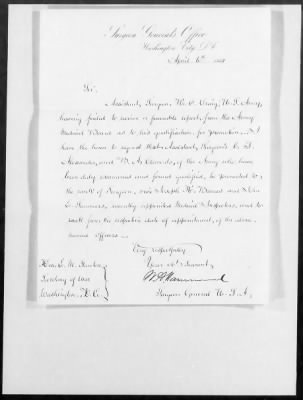 Surgeon General's Office
Washington City, D.C.
April 6th 1863
Sir,
Assistant Surgeon, W. C. U.S. Army,
having failed to receive a favorable report, from the Army
Medical Board as to his qualification, for promotion, I
have the honor to request that Assistant Surgeons C. T.
Alexander, and B. A. Clements, of the Army who have
been duly examined and found qualified, be promoted to
the rank of Surgeon, vice Joseph K. Barnes and John
Summers, recently appointed Medical Inspectors, and to
rank from the respective date of appointment, of the above
named officers.
Very respectfully
Your Obt Servant,
Hon. E. M. Stanton
Secretary of War
Washington, D.C.
Surgeon General U.S.A.